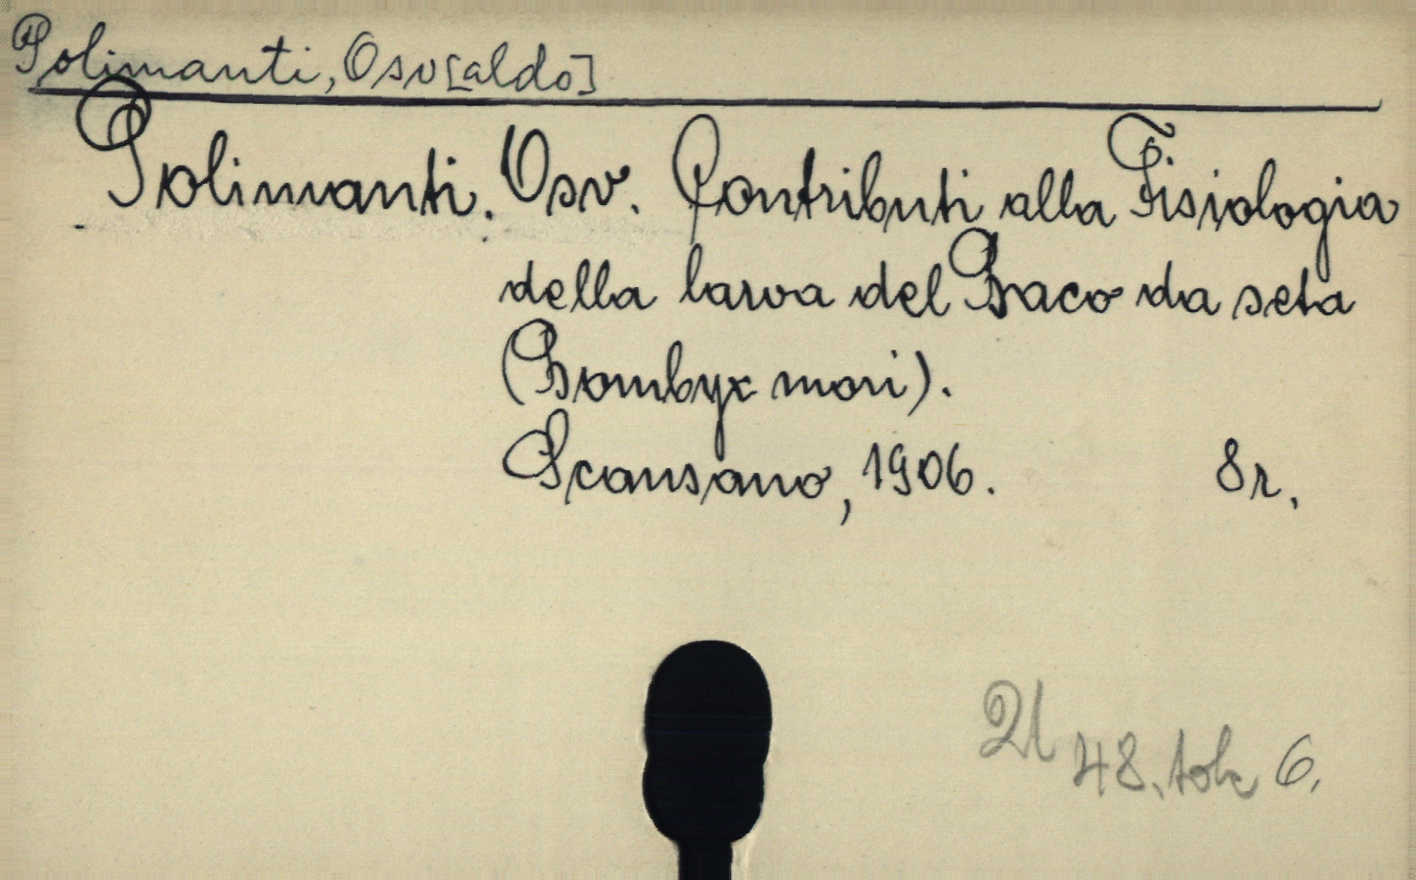 Polimanti, Osv[aldo]
Polimanti. Osv. Contributi alla Fisiologia
della larva del Baco da seta
(Bombyx mori).
Scansano, 1906. 8r.
48. tok 6.